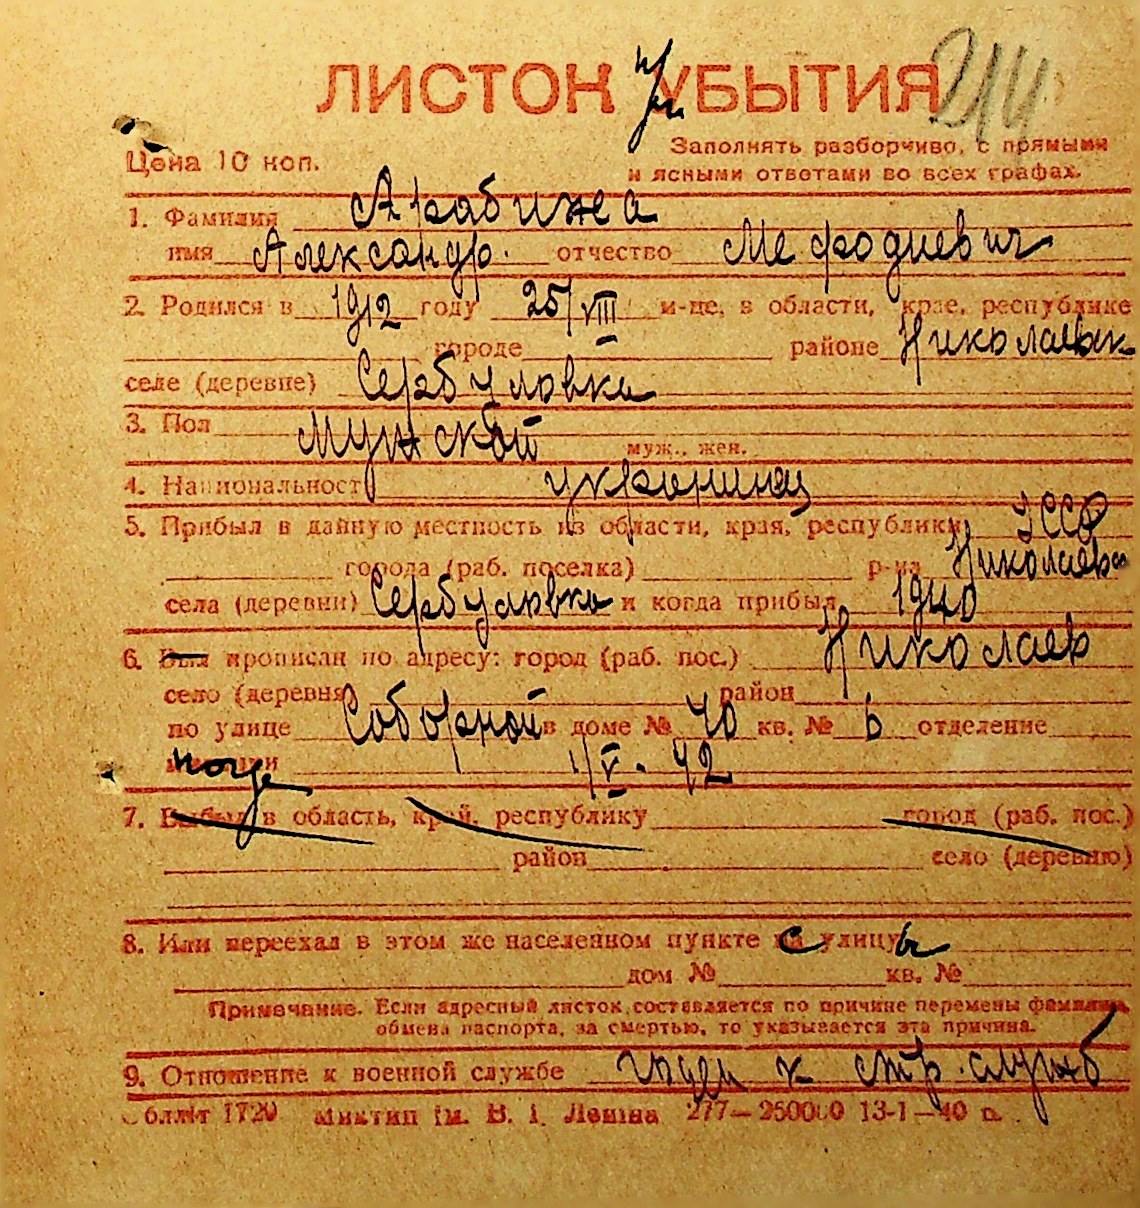 ЛИСТОК УБЫТИЯ 244
Цена 10 коп. Заполнять разборчиво, с прямыми
и ясными ответами во всех графах.
1. Фамилия Арабинса
имя Александр. отчество Мефодиевич
2. Родился в 1912 году 25/VIII м-це, в области, крае, республике
городе районе Николаевск
селе (деревне) Сербуловка
3. Пол мужской
муж., жен.
4. Национальност украинец
5. Прибыл в данную местность из области, края, республики УССР
города (раб. поселка) р-на Николаевск
села (деревни) Сербуловки и когда прибыл 1940
6. Был прописан по адресу: город (раб. пос.) Николаев
село (деревня) район
по улице Соборной в доме № 40 кв. № 6 отделение
когда 1/V. 42
7. Выбыл в область, край, республику город (раб. пос.)
район село (деревню)
8. Или переехал в этом же населенном пункте с улицы
дом № кв. №
Примечание. Если адресный листок составляется по причине перемены фамилии,
обмена паспорта, за смертью, то указывается эта причина.
9. Отношение к военной службе годен к стр. служб
Обллит 1720 Миктип ім. В. І. Леніна 277—250000 13-1—40 р.